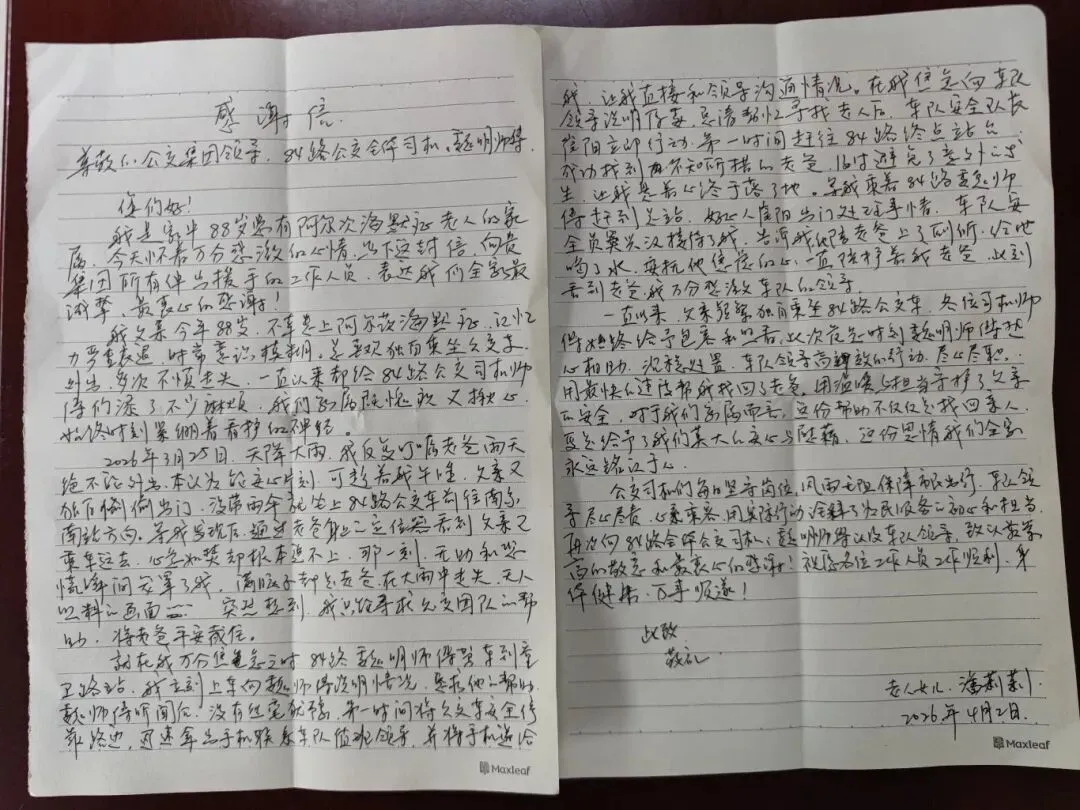 感谢信
尊敬的公交集团领导、84路公交全体司机、赵明师傅:
您们好!
我是家中88岁患有阿尔茨海默症老人的家
属,今天怀着万分感激的心情,写下这封信,向贵
集团所有伸出援手的工作人员,表达我们全家最
诚挚、最衷心的感谢!
我父亲今年88岁,不幸患上阿尔茨海默症,记忆
力严重衰退,时常意识模糊,总喜欢独自乘坐公交车
外出,多次不慎走失,一直以来都给84路公交司机师
傅们添了不少麻烦,我们家属既愧疚又揪心,
始终时刻紧绷着看护的神经。
2026年3月25日,天降大雨,我反复叮嘱老爸雨天
绝不能外出,本以为能安心片刻,可趁着我午睡,父亲又
独自偷偷出门,没带雨伞就坐上84路公交车前往南
南站方向。等我发现后,通过老爸身上定位器看到父亲又
乘车远去,心急如焚却根本追不上,那一刻,无助和恐
慌瞬间笼罩了我,满脑子都是老爸在大雨中走失、无人
照料的画面…… 突然想到,我只能寻求公交团队的帮
助,将老爸平安截住。
就在我万分焦急之时,84路赵明师傅驾车到童
卫路站,我立刻上车向赵师傅说明情况,恳求他的帮助,
赵师傅听闻后,没有丝毫犹豫,第一时间将公交车安全停
靠路边,迅速拿出手机联系车队值班领导,并将手机递给
我,让我直接和领导沟通情况。在我焦急向车队
领导说明原委,恳请帮忙寻找老人后,车队安全队长
阳立即行动,第一时间赶往84路终点站台,
成功找到再不知所措的老爸,及时避免了意外的发
生,让我悬着心终于落了地。等我乘着84路赵师
傅赶到总站,好心人阳出门处理事情,车队安
全员接待了我,告诉我他陪老爸上了厕所,给他
喝了水,安抚他焦虑的心,一直陪护着我老爸,此刻
看到老爸,我万分感激车队的领导。
一直以来,父亲频繁独自乘坐84路公交车,各位司机师
傅始终给予包容和照看,此次危急时刻赵明师傅热
心相助、沉稳处置,车队领导高效的行动、尽心尽职,
用最快的速度帮我找回了老爸,用温暖与担当守护了父亲
的安全,对于我们家属而言,这份帮助不仅仅是找回亲人,
更是给予了我们莫大的安心与慰藉,这份恩情我们全家
永远铭记于心。
公交司机们每日坚守岗位,风雨无阻保障市民出行,车队领
导尽心尽责、心系乘客,用实际行动诠释了为民服务的初心和担当。
再次向84路全体公交司机、赵明师傅以及车队领导,致以最崇
高的敬意和最衷心的感谢!祝愿各位工作人员工作顺利、身
体健康、万事顺遂!
此致
敬礼
老人女儿:潘莉莉
2026年4月2日.
Maxleaf
Maxleaf